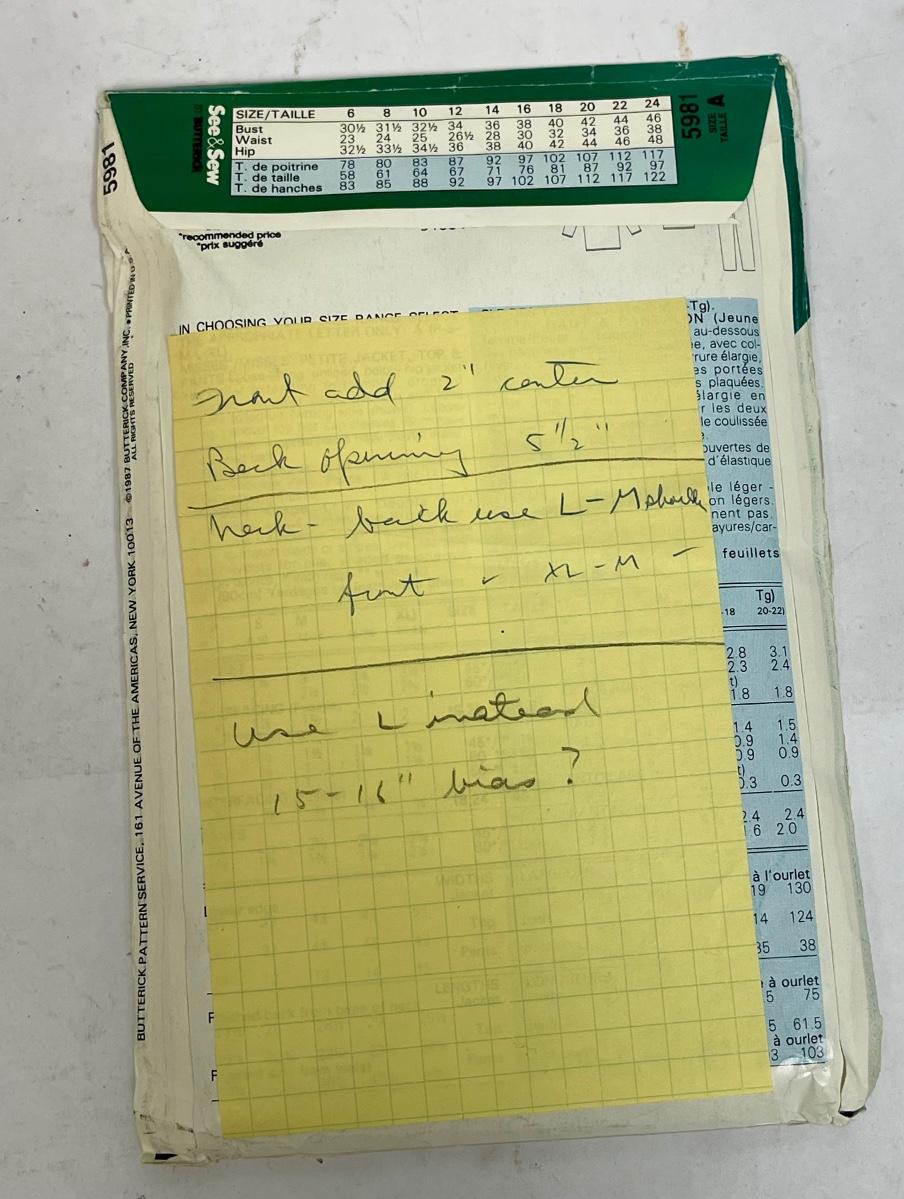 See&Sew
BY BUTTERICK
SIZE/TAILLE 6 8 10 12 14 16 18 20 22 24
Bust 30½ 31½ 32½ 34 36 38 40 42 44 46
Waist 23 24 25 26½ 28 30 32 34 36 38
Hip 32½ 33½ 34½ 36 38 40 42 44 46 48
T. de poitrine 78 80 83 87 92 97 102 107 112 117
T. de taille 58 61 64 67 71 76 81 87 92 97
T. de hanches 83 85 88 92 97 102 107 112 117 122
5981
SIZE
TAILLE A
5981
*recommended price
*prix suggéré
BUTTERICK PATTERN SERVICE, 161 AVENUE OF THE AMERICAS, NEW YORK 10013 ©1987 BUTTERICK COMPANY, INC. • PRINTED IN U.S.A.
ALL RIGHTS RESERVED
IN CHOOSING YOUR SIZE RANGE SELECT
front add 2" center
Back opening 5 1/2"
Neck - back use L-M shoulder
front - XL-M -
use L instead
15-16" bias?
-Tg).
ON (Jeune
au-dessous
e, avec col-
rure élargie,
es portées
s plaquées.
élargie en
r les deux
le coulissée
ouvertes de
d'élastique
le léger -
on légers.
nent pas.
ayures/car-
feuillets
Tg)
-18 20-22)
2.8 3.1
2.3 2.4
t)
1.8 1.8
1.4 1.5
0.9 1.4
0.9 0.9
t)
0.3 0.3
2.4 2.4
.6 2.0
à l'ourlet
19 130
14 124
35 38
à ourlet
5 75
5 61.5
à ourlet
3 103